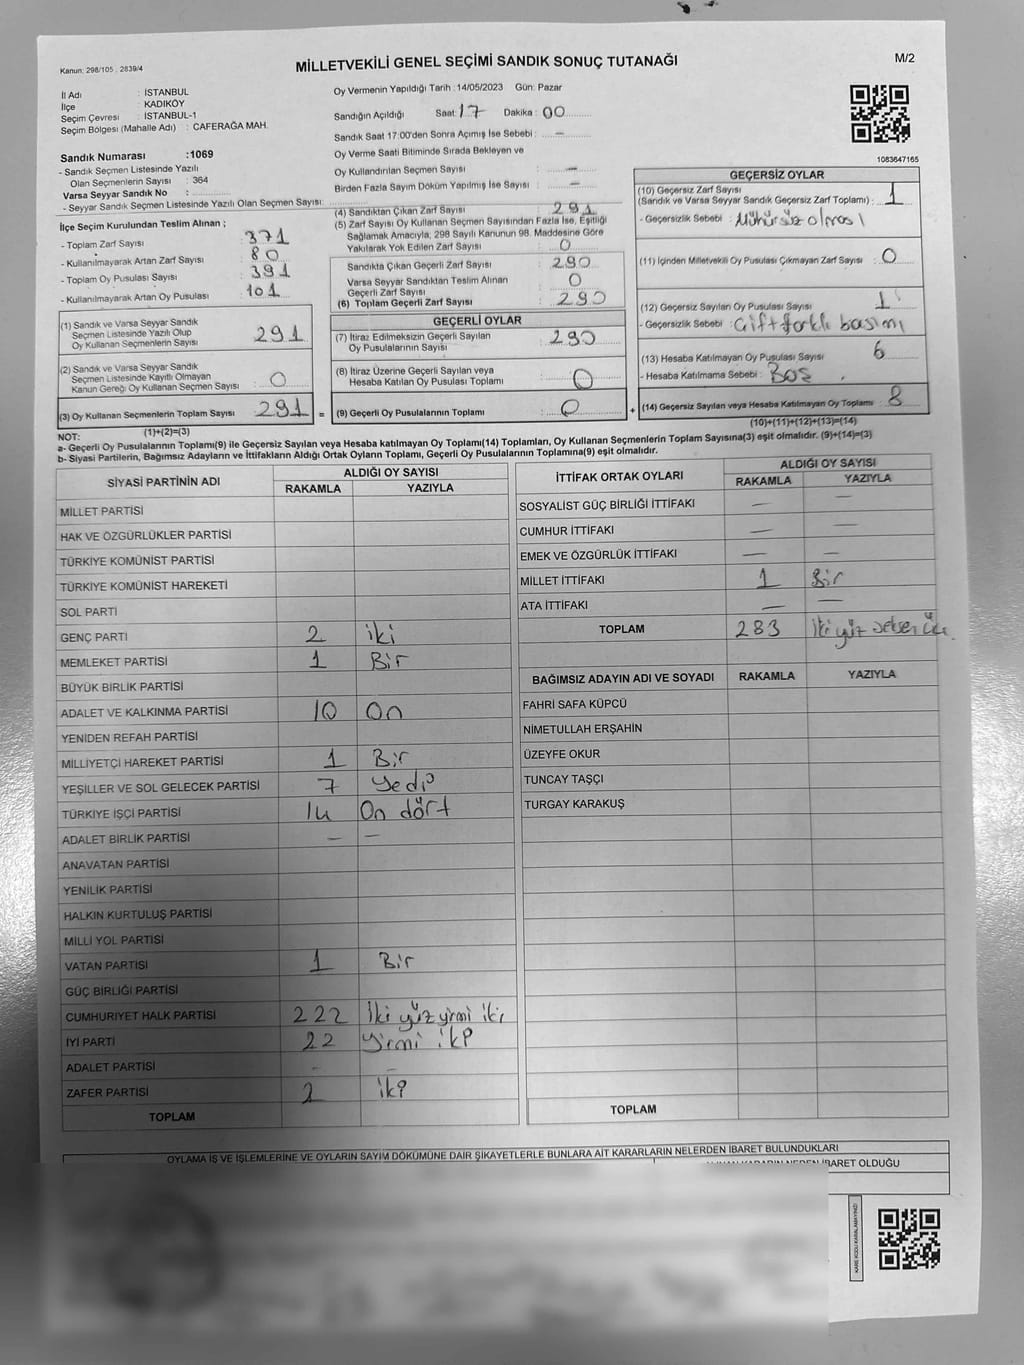 Kanun: 298/105 : 2839/4
MİLLETVEKİLİ GENEL SEÇİMİ SANDIK SONUÇ TUTANAĞI
M/2
İl Adı : İSTANBUL
İlçe : KADIKÖY
Seçim Çevresi : İSTANBUL-1
Seçim Bölgesi (Mahalle Adı) : CAFERAĞA MAH.
Sandık Numarası :1069
- Sandık Seçmen Listesinde Yazılı
Olan Seçmenlerin Sayısı : 364
Varsa Seyyar Sandık No :
- Seyyar Sandık Seçmen Listesinde Yazılı Olan Seçmen Sayısı:
Oy Vermenin Yapıldığı Tarih : 14/05/2023 Gün: Pazar
Sandığın Açıldığı Saat: 17 Dakika : 00
Sandık Saat 17:00'den Sonra Açılmış İse Sebebi : —
Oy Verme Saati Bitiminde Sırada Bekleyen ve
Oy Kullandırılan Seçmen Sayısı : —
Birden Fazla Sayım Döküm Yapılmış İse Sayısı : —
1083647165
İlçe Seçim Kurulundan Teslim Alınan ;
- Toplam Zarf Sayısı : 371
- Kullanılmayarak Artan Zarf Sayısı : 80
- Toplam Oy Pusulası Sayısı : 391
- Kullanılmayarak Artan Oy Pusulası : 101
(1) Sandık ve Varsa Seyyar Sandık
Seçmen Listesinde Yazılı Olup
Oy Kullanan Seçmenlerin Sayısı : 291
(2) Sandık ve Varsa Seyyar Sandık
Seçmen Listesinde Kayıtlı Olmayan
Kanun Gereği Oy Kullanan Seçmen Sayısı : 0
(3) Oy Kullanan Seçmenlerin Toplam Sayısı : 291 =
(1)+(2)=(3)
(4) Sandıktan Çıkan Zarf Sayısı : 291
(5) Zarf Sayısı Oy Kullanan Seçmen Sayısından Fazla İse, Eşitliği
Sağlamak Amacıyla, 298 Sayılı Kanunun 98. Maddesine Göre
Yakılarak Yok Edilen Zarf Sayısı : 0
Sandıkta Çıkan Geçerli Zarf Sayısı : 290
Varsa Seyyar Sandıktan Teslim Alınan
Geçerli Zarf Sayısı : 0
(6) Toplam Geçerli Zarf Sayısı : 290
GEÇERLİ OYLAR
(7) İtiraz Edilmeksizin Geçerli Sayılan
Oy Pusulalarının Sayısı : 290
(8) İtiraz Üzerine Geçerli Sayılan veya
Hesaba Katılan Oy Pusulası Toplamı : 0
(9) Geçerli Oy Pusulalarının Toplamı : 0 +
GEÇERSİZ OYLAR
(10) Geçersiz Zarf Sayısı
(Sandık ve Varsa Seyyar Sandık Geçersiz Zarf Toplamı) : 1
- Geçersizlik Sebebi : Mühürsüz olması
(11) İçinden Milletvekili Oy Pusulası Çıkmayan Zarf Sayısı : 0
(12) Geçersiz Sayılan Oy Pusulası Sayısı : 1
- Geçersizlik Sebebi : Çift farklı basımı
(13) Hesaba Katılmayan Oy Pusulası Sayısı : 6
- Hesaba Katılmama Sebebi : Boş .
(14) Geçersiz Sayılan veya Hesaba Katılmayan Oy Toplamı : 8
(10)+(11)+(12)+(13)=(14)
NOT:
a- Geçerli Oy Pusulalarının Toplamı(9) ile Geçersiz Sayılan veya Hesaba katılmayan Oy Toplamı(14) Toplamları, Oy Kullanan Seçmenlerin Toplam Sayısına(3) eşit olmalıdır. (9)+(14)=(3)
b- Siyasi Partilerin, Bağımsız Adayların ve İttifakların Aldığı Ortak Oyların Toplamı, Geçerli Oy Pusulalarının Toplamına(9) eşit olmalıdır.
SİYASİ PARTİNİN ADI ALDIĞI OY SAYISI
RAKAMLA YAZIYLA
MİLLET PARTİSİ
HAK VE ÖZGÜRLÜKLER PARTİSİ
TÜRKİYE KOMÜNİST PARTİSİ
TÜRKİYE KOMÜNİST HAREKETİ
SOL PARTİ
GENÇ PARTİ 2 iki
MEMLEKET PARTİSİ 1 Bir
BÜYÜK BİRLİK PARTİSİ
ADALET VE KALKINMA PARTİSİ 10 On
YENİDEN REFAH PARTİSİ
MİLLİYETÇİ HAREKET PARTİSİ 1 Bir
YEŞİLLER VE SOL GELECEK PARTİSİ 7 Yedi
TÜRKİYE İŞÇİ PARTİSİ 14 On dört
ADALET BİRLİK PARTİSİ — —
ANAVATAN PARTİSİ
YENİLİK PARTİSİ
HALKIN KURTULUŞ PARTİSİ
MİLLİ YOL PARTİSİ
VATAN PARTİSİ 1 Bir
GÜÇ BİRLİĞİ PARTİSİ
CUMHURİYET HALK PARTİSİ 222 İki yüz yirmi iki
İYİ PARTİ 22 Yirmi iki
ADALET PARTİSİ - -
ZAFER PARTİSİ 2 iki
TOPLAM
İTTİFAK ORTAK OYLARI ALDIĞI OY SAYISI
RAKAMLA YAZIYLA
SOSYALİST GÜÇ BİRLİĞİ İTTİFAKI — —
CUMHUR İTTİFAKI — —
EMEK VE ÖZGÜRLÜK İTTİFAKI — —
MİLLET İTTİFAKI 1 Bir
ATA İTTİFAKI — —
TOPLAM 283 İki yüz seksen üç
BAĞIMSIZ ADAYIN ADI VE SOYADI RAKAMLA YAZIYLA
FAHRİ SAFA KÜPCÜ
NİMETULLAH ERŞAHİN
ÜZEYFE OKUR
TUNCAY TAŞÇI
TURGAY KARAKUŞ
TOPLAM
OYLAMA İŞ VE İŞLEMLERİNE VE OYLARIN SAYIM DÖKÜMÜNE DAİR ŞİKAYETLERLE BUNLARA AİT KARARLARIN NELERDEN İBARET BULUNDUKLARI
İBARET OLDUĞU
KARE KODU KARALAMAYINIZ!